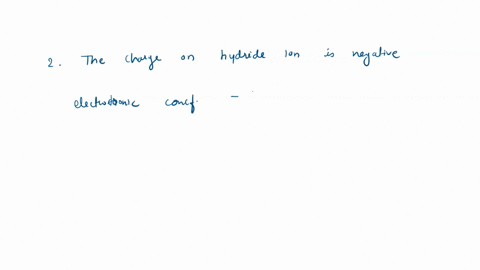 2. The charge on hydride Ion is negative
electronic conf. -